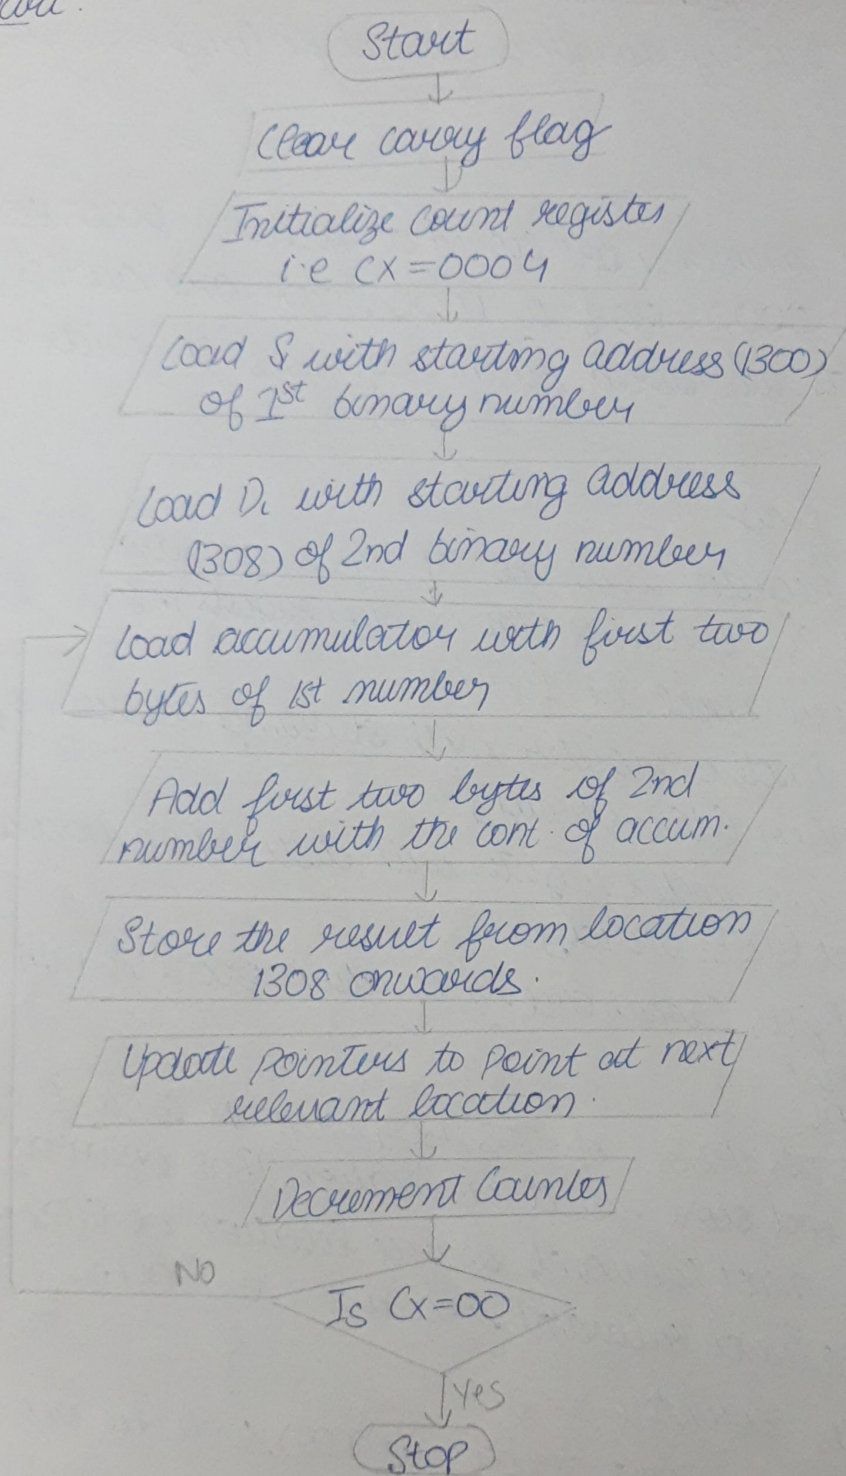 Start
Clear carry flag
Initialize count register
i.e CX=0004
Load Si with starting address (1300)
of 1st binary number
Load Di with starting address
(1308) of 2nd binary number
Load accumulator with first two
bytes of 1st number
Add first two bytes of 2nd
number with the cont. of accum.
Store the result from location
1308 onwards.
Update pointers to point at next
relevant location.
Decrement Counter
NO
Is Cx=00
Yes
Stop